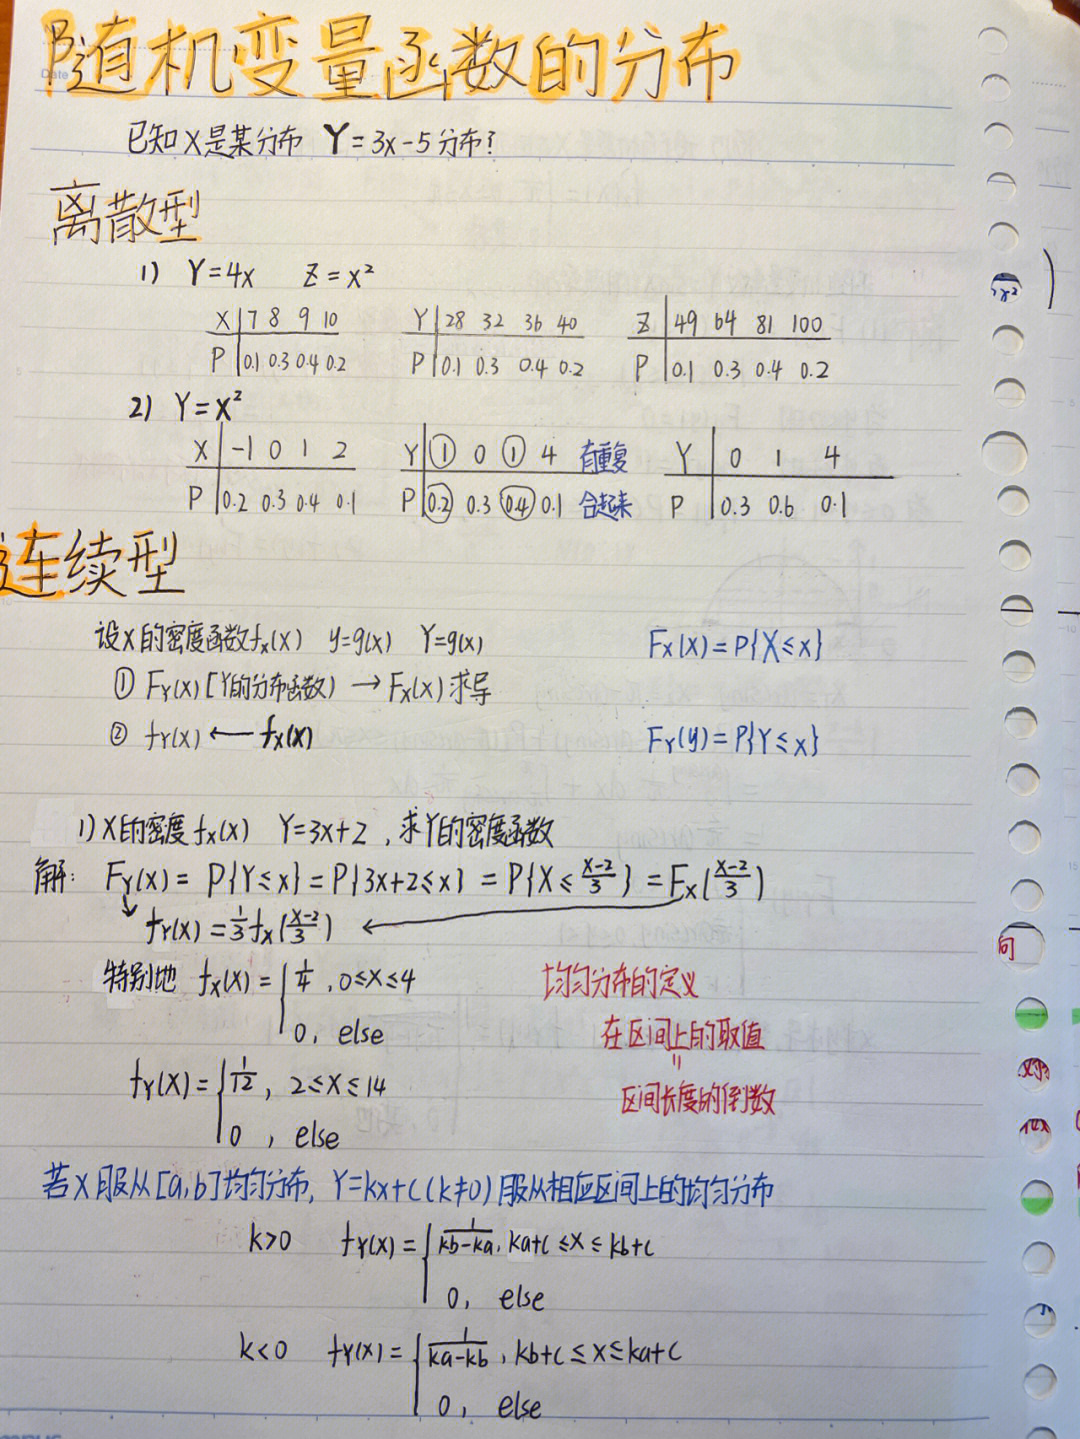 随机变量函数的分布
已知X是某分布 Y=3x-5分布?
离散型
1) Y=4x Z=x²
X 7 8 9 10
P 0.1 0.3 0.4 0.2
Y 28 32 36 40
P 0.1 0.3 0.4 0.2
Z 49 64 81 100
P 0.1 0.3 0.4 0.2
2) Y=X²
X -1 0 1 2
P 0.2 0.3 0.4 0.1
Y ① 0 ① 4 有重复
P 0.2 0.3 0.4 0.1 合起来
Y 0 1 4
P 0.3 0.6 0.1
连续型
设X的密度函数fx(x) y=g(x) Y=g(x)
Fx(x)=P{X≤x}
① FY(x) [Y的分布函数) → Fx(x)求导
② fY(x) ← fx(x)
FY(y)=P{Y≤x}
1) X的密度fx(x) Y=3x+2, 求Y的密度函数
解: FY(x)=P{Y≤x}=P{3x+2≤x}=P{X≤(x-2)/3}=Fx((x-2)/3)
fY(x)=1/3 fx((x-2)/3)
特别地 fx(x)={1/4, 0≤x≤4
0, else
均匀分布的定义
在区间上的取值
=
区间长度的倒数
fY(x)={1/12, 2≤x≤14
0, else
若X服从[a,b]均匀分布, Y=kx+c(k≠0)服从相应区间上的均匀分布
k>0 fY(x)={1/(kb-ka), ka+c≤x≤kb+c
0, else
k<0 fY(x)={1/(ka-kb), kb+c≤x≤ka+c
0, else